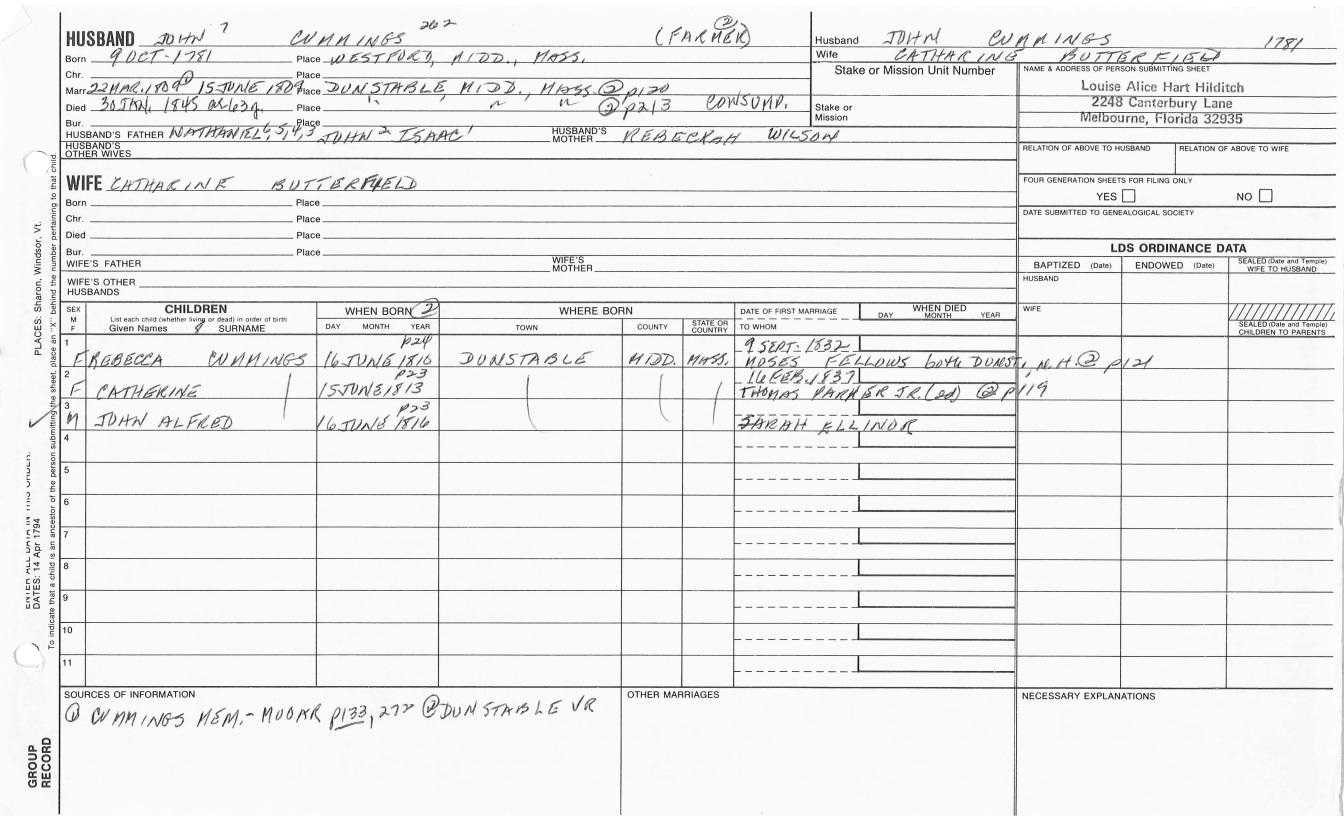 HUSBAND JOHN 7 CUMMINGS 262 (FARMER) ②
Born 9 OCT-1781 Place WESTFORD, MIDD., MASS.
Chr. Place
Marr. 22 MAR. 1809 ① 15 JUNE 1809 Place DUNSTABLE, MIDD., MASS ② p120
Died 30 JAN. 1845 ae 63y. Place " " " ② p213 CONSUMP.
Bur. Place
HUSBAND'S FATHER NATHANIEL 6, 5, 4, 3 JOHN 2 ISAAC 1 HUSBAND'S MOTHER REBECKAH WILSON
HUSBAND'S OTHER WIVES
WIFE CATHARINE BUTTERFIELD
Born Place
Chr. Place
Died Place
Bur. Place
WIFE'S FATHER WIFE'S MOTHER
WIFE'S OTHER HUSBANDS
Husband JOHN CUMMINGS 1781
Wife CATHARINE BUTTERFIELD
Stake or Mission Unit Number
Stake or Mission
NAME & ADDRESS OF PERSON SUBMITTING SHEET
Louise Alice Hart Hilditch
2248 Canterbury Lane
Melbourne, Florida 32935
RELATION OF ABOVE TO HUSBAND RELATION OF ABOVE TO WIFE
FOUR GENERATION SHEETS FOR FILING ONLY
YES NO
DATE SUBMITTED TO GENEALOGICAL SOCIETY
LDS ORDINANCE DATA
BAPTIZED (Date) ENDOWED (Date) SEALED (Date and Temple) WIFE TO HUSBAND
HUSBAND
WIFE
SEALED (Date and Temple) CHILDREN TO PARENTS
SEX M F CHILDREN WHEN BORN ② WHERE BORN DATE OF FIRST MARRIAGE WHEN DIED
List each child (whether living or dead) in order of birth
Given Names 8 SURNAME DAY MONTH YEAR TOWN COUNTY STATE OR COUNTRY TO WHOM DAY MONTH YEAR
1 p24 9 SEPT. 1832
F REBECCA CUMMINGS 16 JUNE 1810 DUNSTABLE MIDD. MASS. MOSES FELLOWS both DUNST, N.H. ② p121
2 p23 16 FEB. 1837
F CATHERINE 15 JUNE 1813 THOMAS PARKER JR. (ed) ② p119
3 p23
M JOHN ALFRED 16 JUNE 1816 SARAH ELLINOR
4
5
6
7
8
9
10
11
SOURCES OF INFORMATION
① CUMMINGS MEM.- MOOAR p133, 272 ② DUNSTABLE VR
OTHER MARRIAGES
NECESSARY EXPLANATIONS
GROUP RECORD
ENTER ALL DATA IN THIS ORDER:
DATES: 14 Apr 1794 PLACES: Sharon, Windsor, Vt.
To indicate that a child is an ancestor of the person submitting the sheet, place an "X" behind the number pertaining to that child.